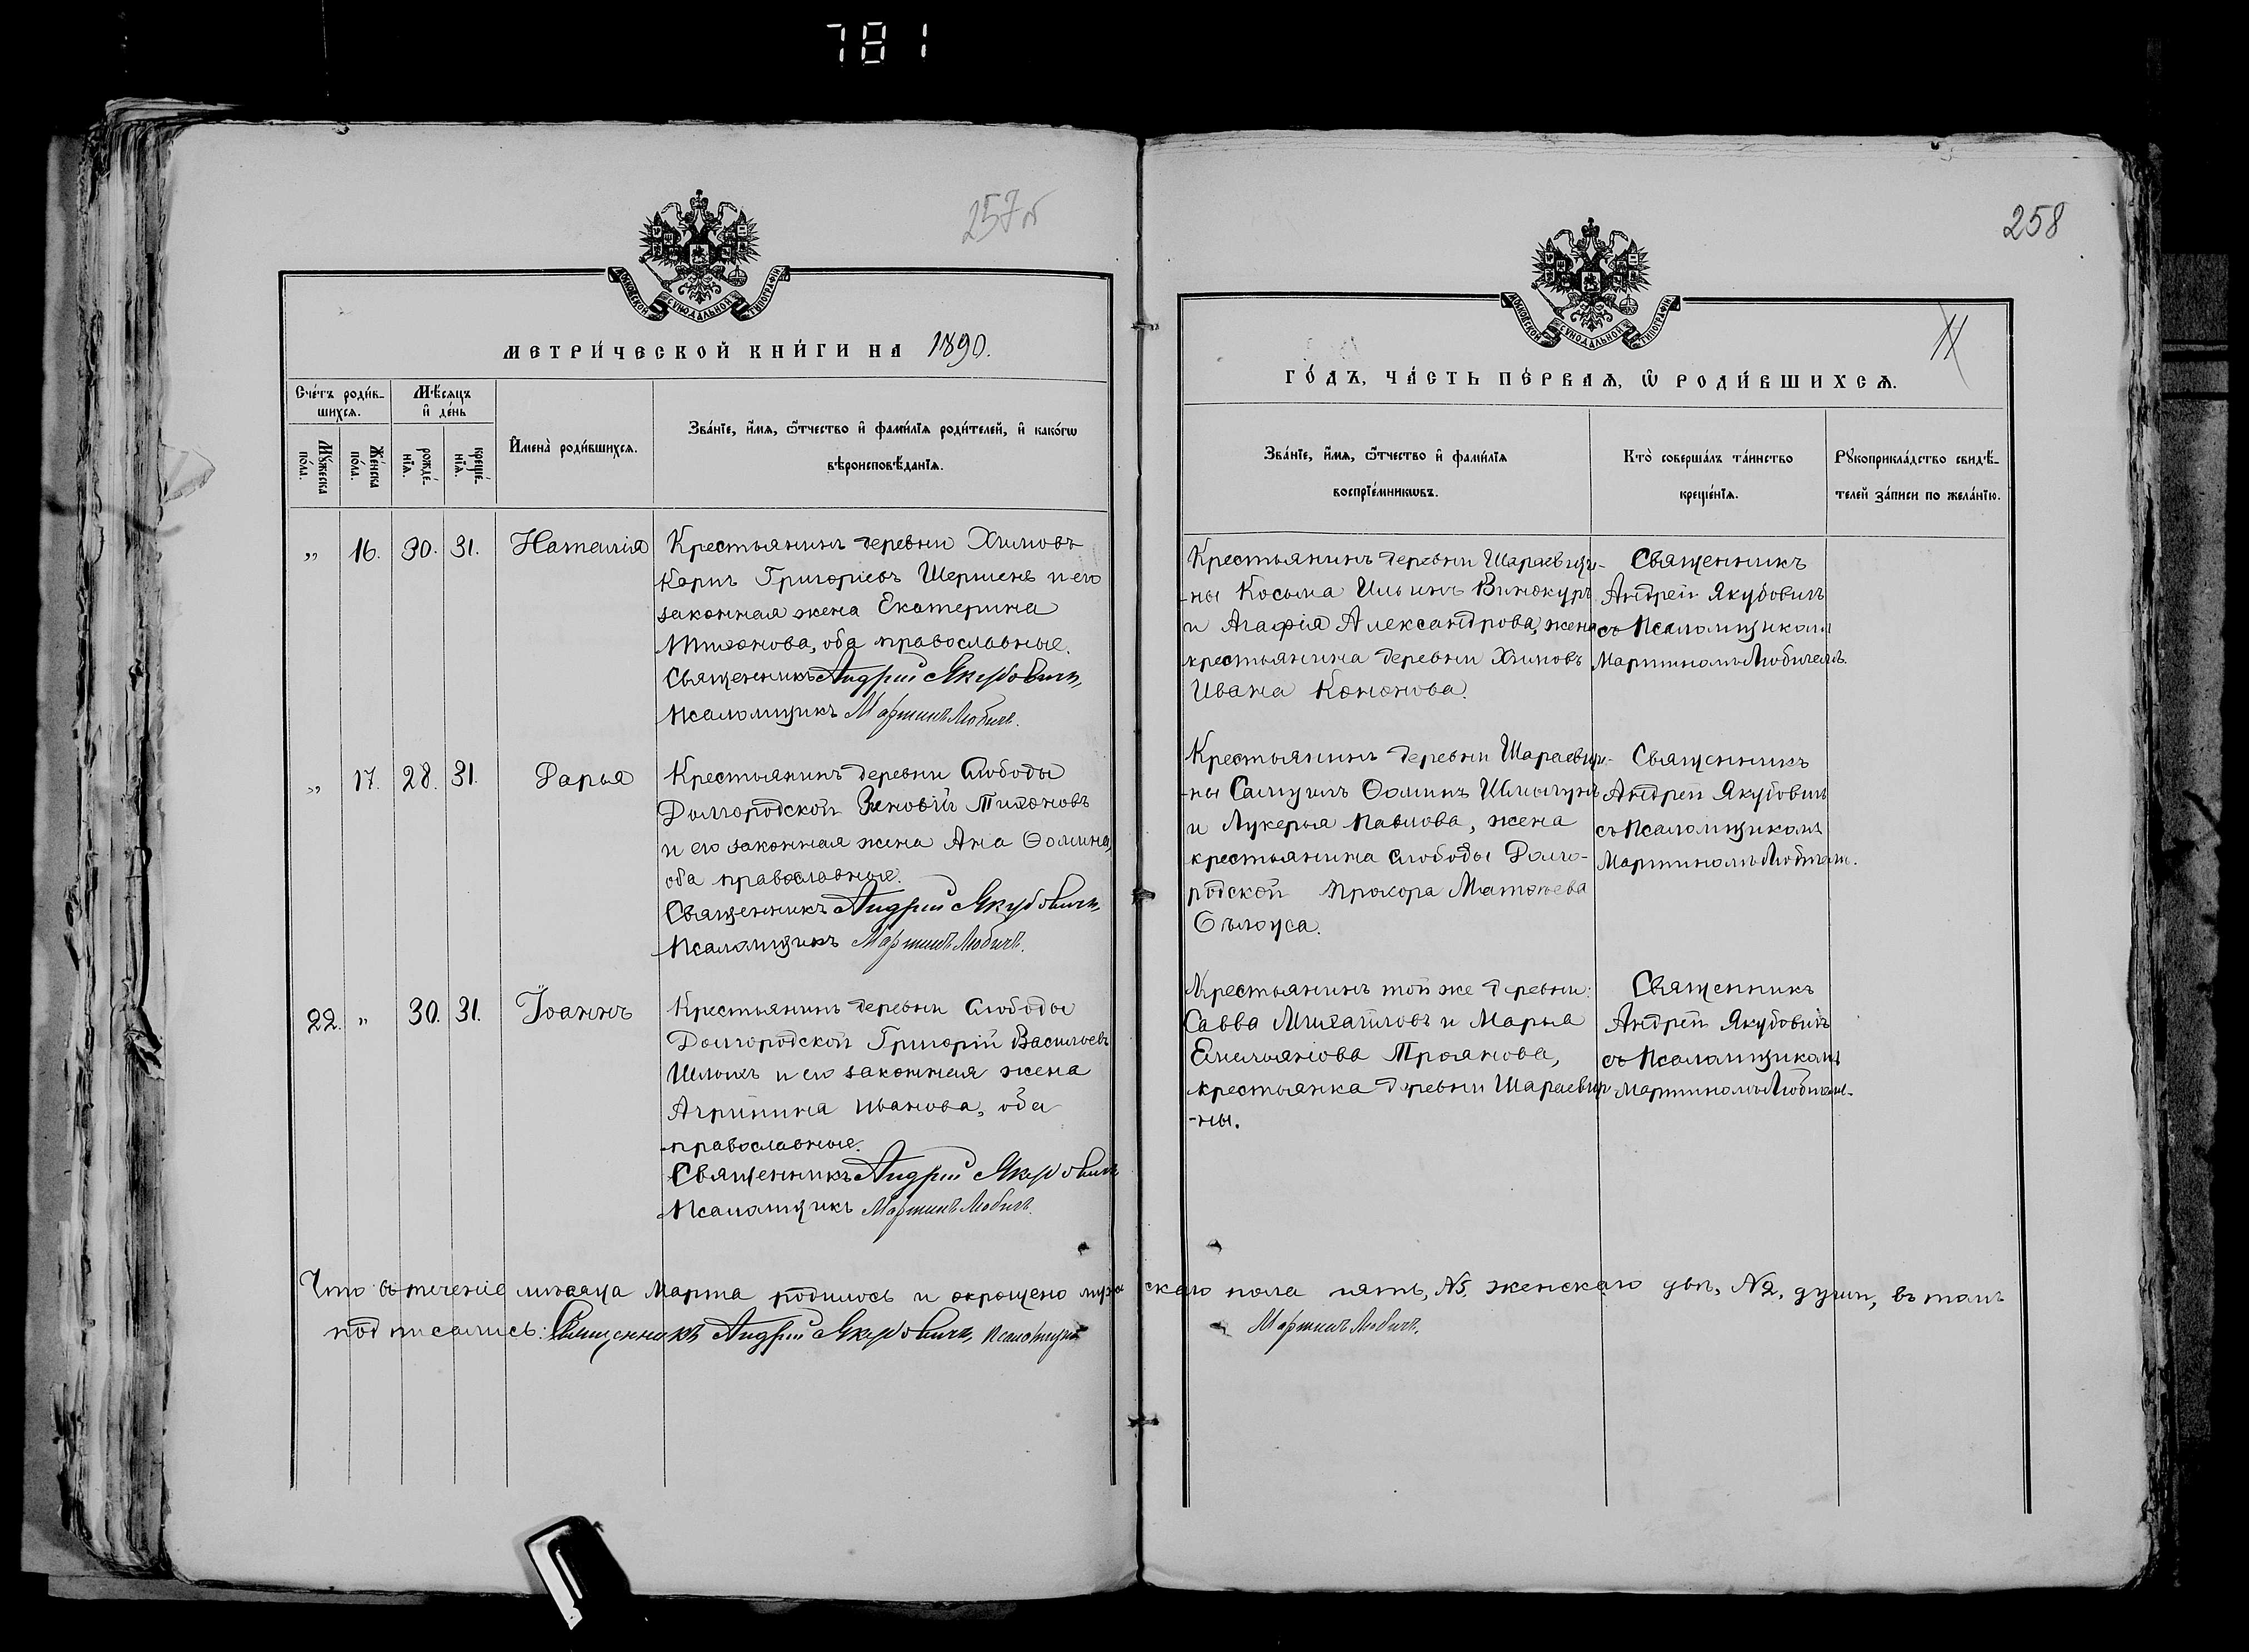 781
257об
МОСКОВСКОЙ СѴНОДАЛЬНОЙ ТИПОГРАФІИ
МЕТРИ́ЧЕСКОЙ КНИ́ГИ НА 1890.
Сче́тъ роди́в-
шихсѧ.
Мѣ́сѧцъ
и҆ де́нь
Мꙋ́жеска
по́ла.
Же́нска
по́ла.
рожде́-
нїѧ.
креще́-
нїѧ.
И҆мена̀ роди́вшихсѧ.
Зва́нїе, и҆́мѧ, ѻ҆́тчество и҆ фами́лїѧ роди́телей, и҆ како́гѡ
вѣроисповѣ́данїѧ.
„ 16. 30. 31. Наталія
Крестьянинъ деревни Химовъ
Карпъ Григоріевъ Шершень и его
законная жена Екатерина
Тихонова, оба православные.
Священникъ Андрей Якубовичъ,
Псаломщикъ Мартинъ Любичъ.
„ 17. 28. 31. Дарья
Крестьянинъ деревни Слободы
Долгородской Зиновій Тихоновъ
и его законная жена Ана Ѳомина,
оба православные.
Священникъ Андрей Якубовичъ,
Псаломщикъ Мартинъ Любичъ.
22. „ 30. 31. Іоаннъ
Крестьянинъ деревни Слободы
Долгородской Григорій Васильевъ
и его законная жена
Агрипина Иванова, оба
православные.
Священникъ Андрей Якубовичъ
Псаломщикъ Мартинъ Любичъ.
258
11
МОСКОВСКОЙ СѴНОДАЛЬНОЙ ТИПОГРАФІИ
ГО́ДЪ, ЧА́СТЬ ПЕ́РВАѦ, Ѡ҆ РОДИ́ВШИХСѦ.
Зва́нїе, и҆́мѧ, ѻ҆́тчество и҆ фами́лїѧ
воспрїе́мникѡвъ.
Кто̀ соверша́лъ та́инство
креще́нїѧ.
Рꙋкоприкла́дство свидѣ́-
телей за́писи по жела́нїю.
Крестьянинъ деревни Шараевщи-
-ны Косьма Ильинъ Винокуръ
и Агафія Александрова, жена
крестьянина деревни Химовъ
Ивана Кононова.
Священникъ
Андрей Якубовичъ
съ Псаломщикомъ
Мартиномъ Любичемъ.
Крестьянинъ деревни Шараевщи-
-ны Самуилъ Ѳоминъ
и Лукерья Павлова, жена
крестьянина слободы Долго-
родской Прохора
Бѣлоуса.
Священникъ
Андрей Якубовичъ
съ Псаломщикомъ
Мартиномъ Любичемъ.
Крестьянинъ той же деревни:
Савва Михайловъ и Марья
Емельянова Троянова,
крестьянка деревни Шараевщи-
-ны.
Священникъ
Андрей Якубовичъ
съ Псаломщикомъ
Мартиномъ Любичем-
Что въ теченіе мѣсяца Марта родилось и окрещено мужескаго пола пять, №5, женскаго двѣ, №2, души, въ томъ
подписались: Священникъ Андрей Якубовичъ, Псаломщикъ Мартинъ Любичъ.